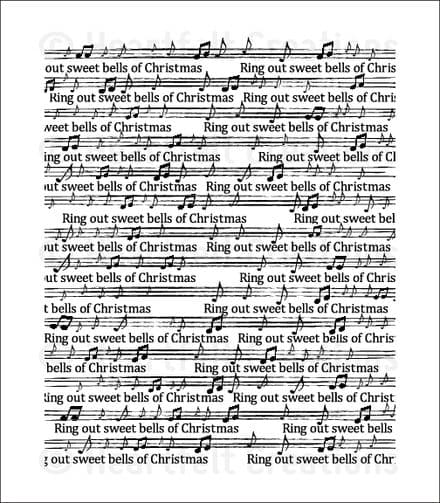 © Heartfelt Creations
out sweet bells of Christmas Ring out sweet bells of Chris
Ring out sweet bells of Christmas Ring out sweet bells of Chri
weet bells of Christmas Ring out sweet bells of Christmas
ing out sweet bells of Christmas Ring out sweet bells of Cl
ut sweet bells of Christmas Ring out sweet bells of Christmas
Ring out sweet bells of Christmas Ring out sweet bel
ut sweet bells of Christmas Ring out sweet bells of Christmas
ut sweet bells of Christmas Ring out sweet bells of Chris
t bells of Christmas Ring out sweet bells of Christmas
Ring out sweet bells of Christmas Ring out sweet bells of Christ
bells of Christmas Ring out sweet bells of Christmas
Ring out sweet bells of Christmas Ring out sweet bells of Christ
Ring out sweet bells of Christmas Ring out sweet bells
g out sweet bells of Christmas Ring out sweet bells of Ch
© Heartfelt Creations